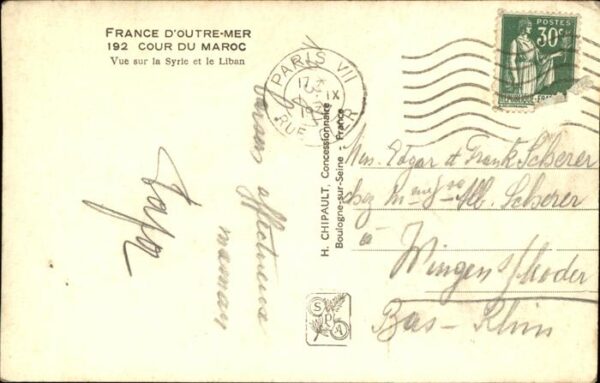 FRANCE D'OUTRE-MER
192 COUR DU MAROC
Vue sur la Syrie et le Liban
PARIS VII
17
IX
19
RUE
POSTES
30c
H. CHIPAULT, Concessionnaire
Boulogne-sur-Seine - France
Baisers affectueux
maman
Mrs. Edgar et Frank Scherer
chez Mme Vve Alb. Scherer
à
Wingen s/Moder
Bas-Rhin
S P A